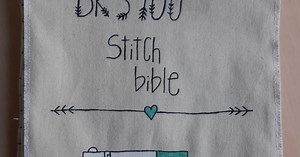 Stitch
bible